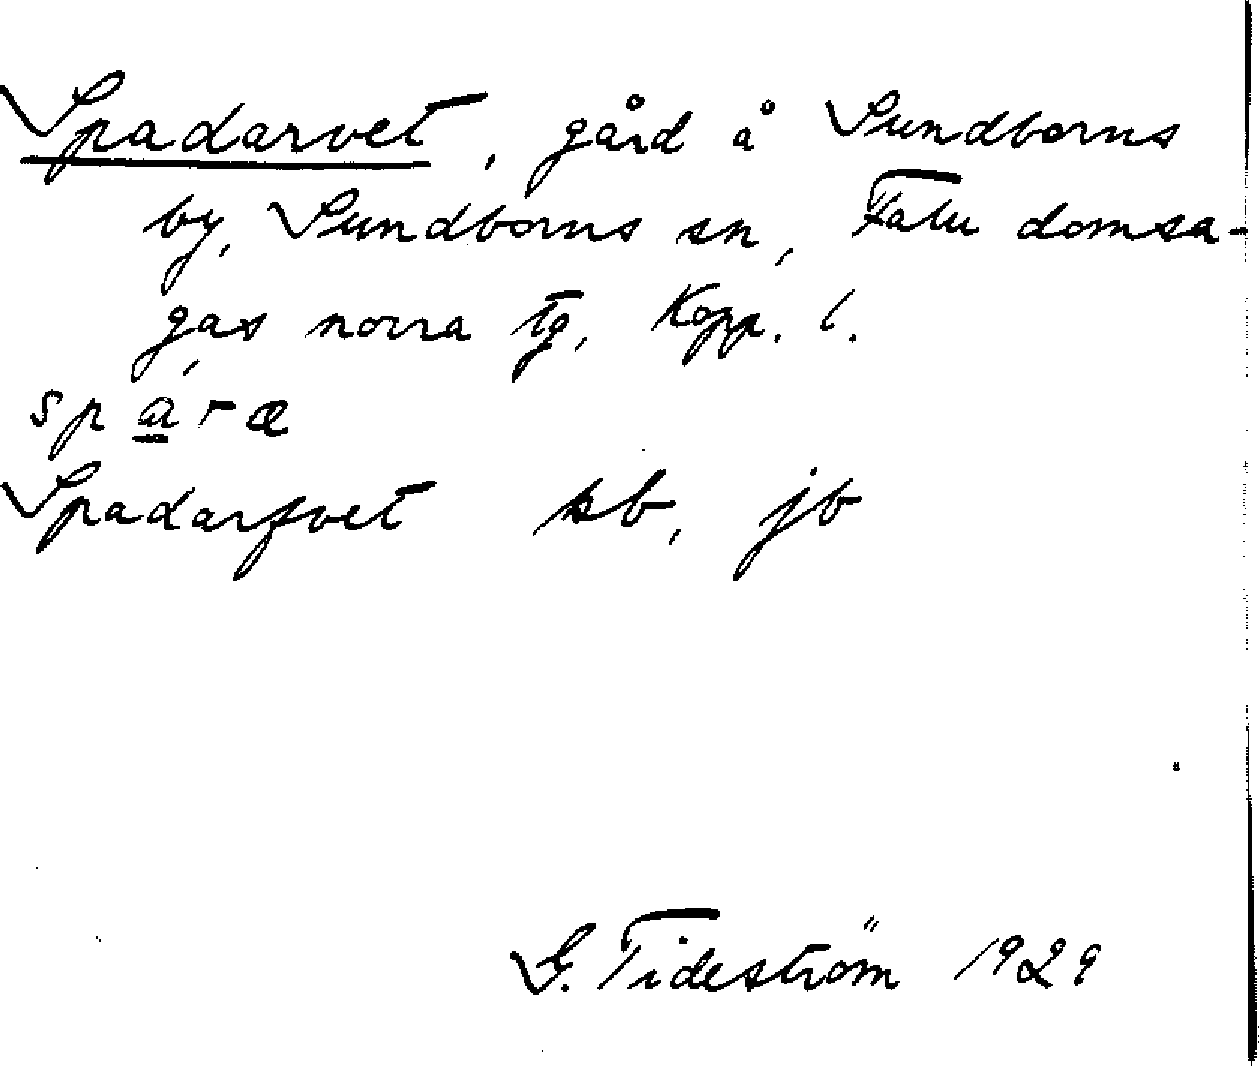 Spadarvet, gård å Sundborns
by, Sundborns sn, Falu domsa-
gas norra tg, Kopp. l.
spa̱´ræ
Spadarfvet sb, jb
G. Tideström 1929